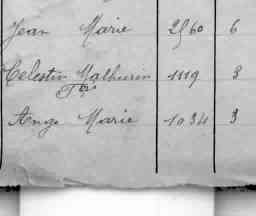 Jean Marie 2560 6
Celestin Mathurin 1119 3
Ange Marie 1034 3